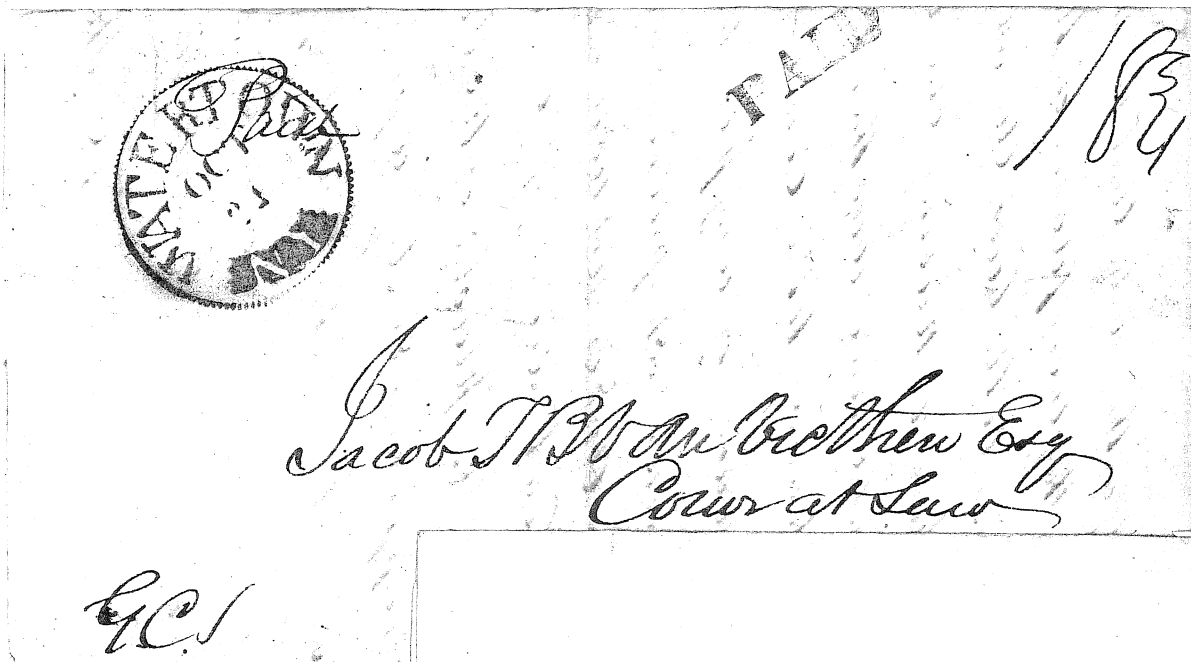 WATERTOWN N.Y.
OCT
Paid
PAID
18 3/4
Jacob T B Van Vechten Esq
Couns at Law